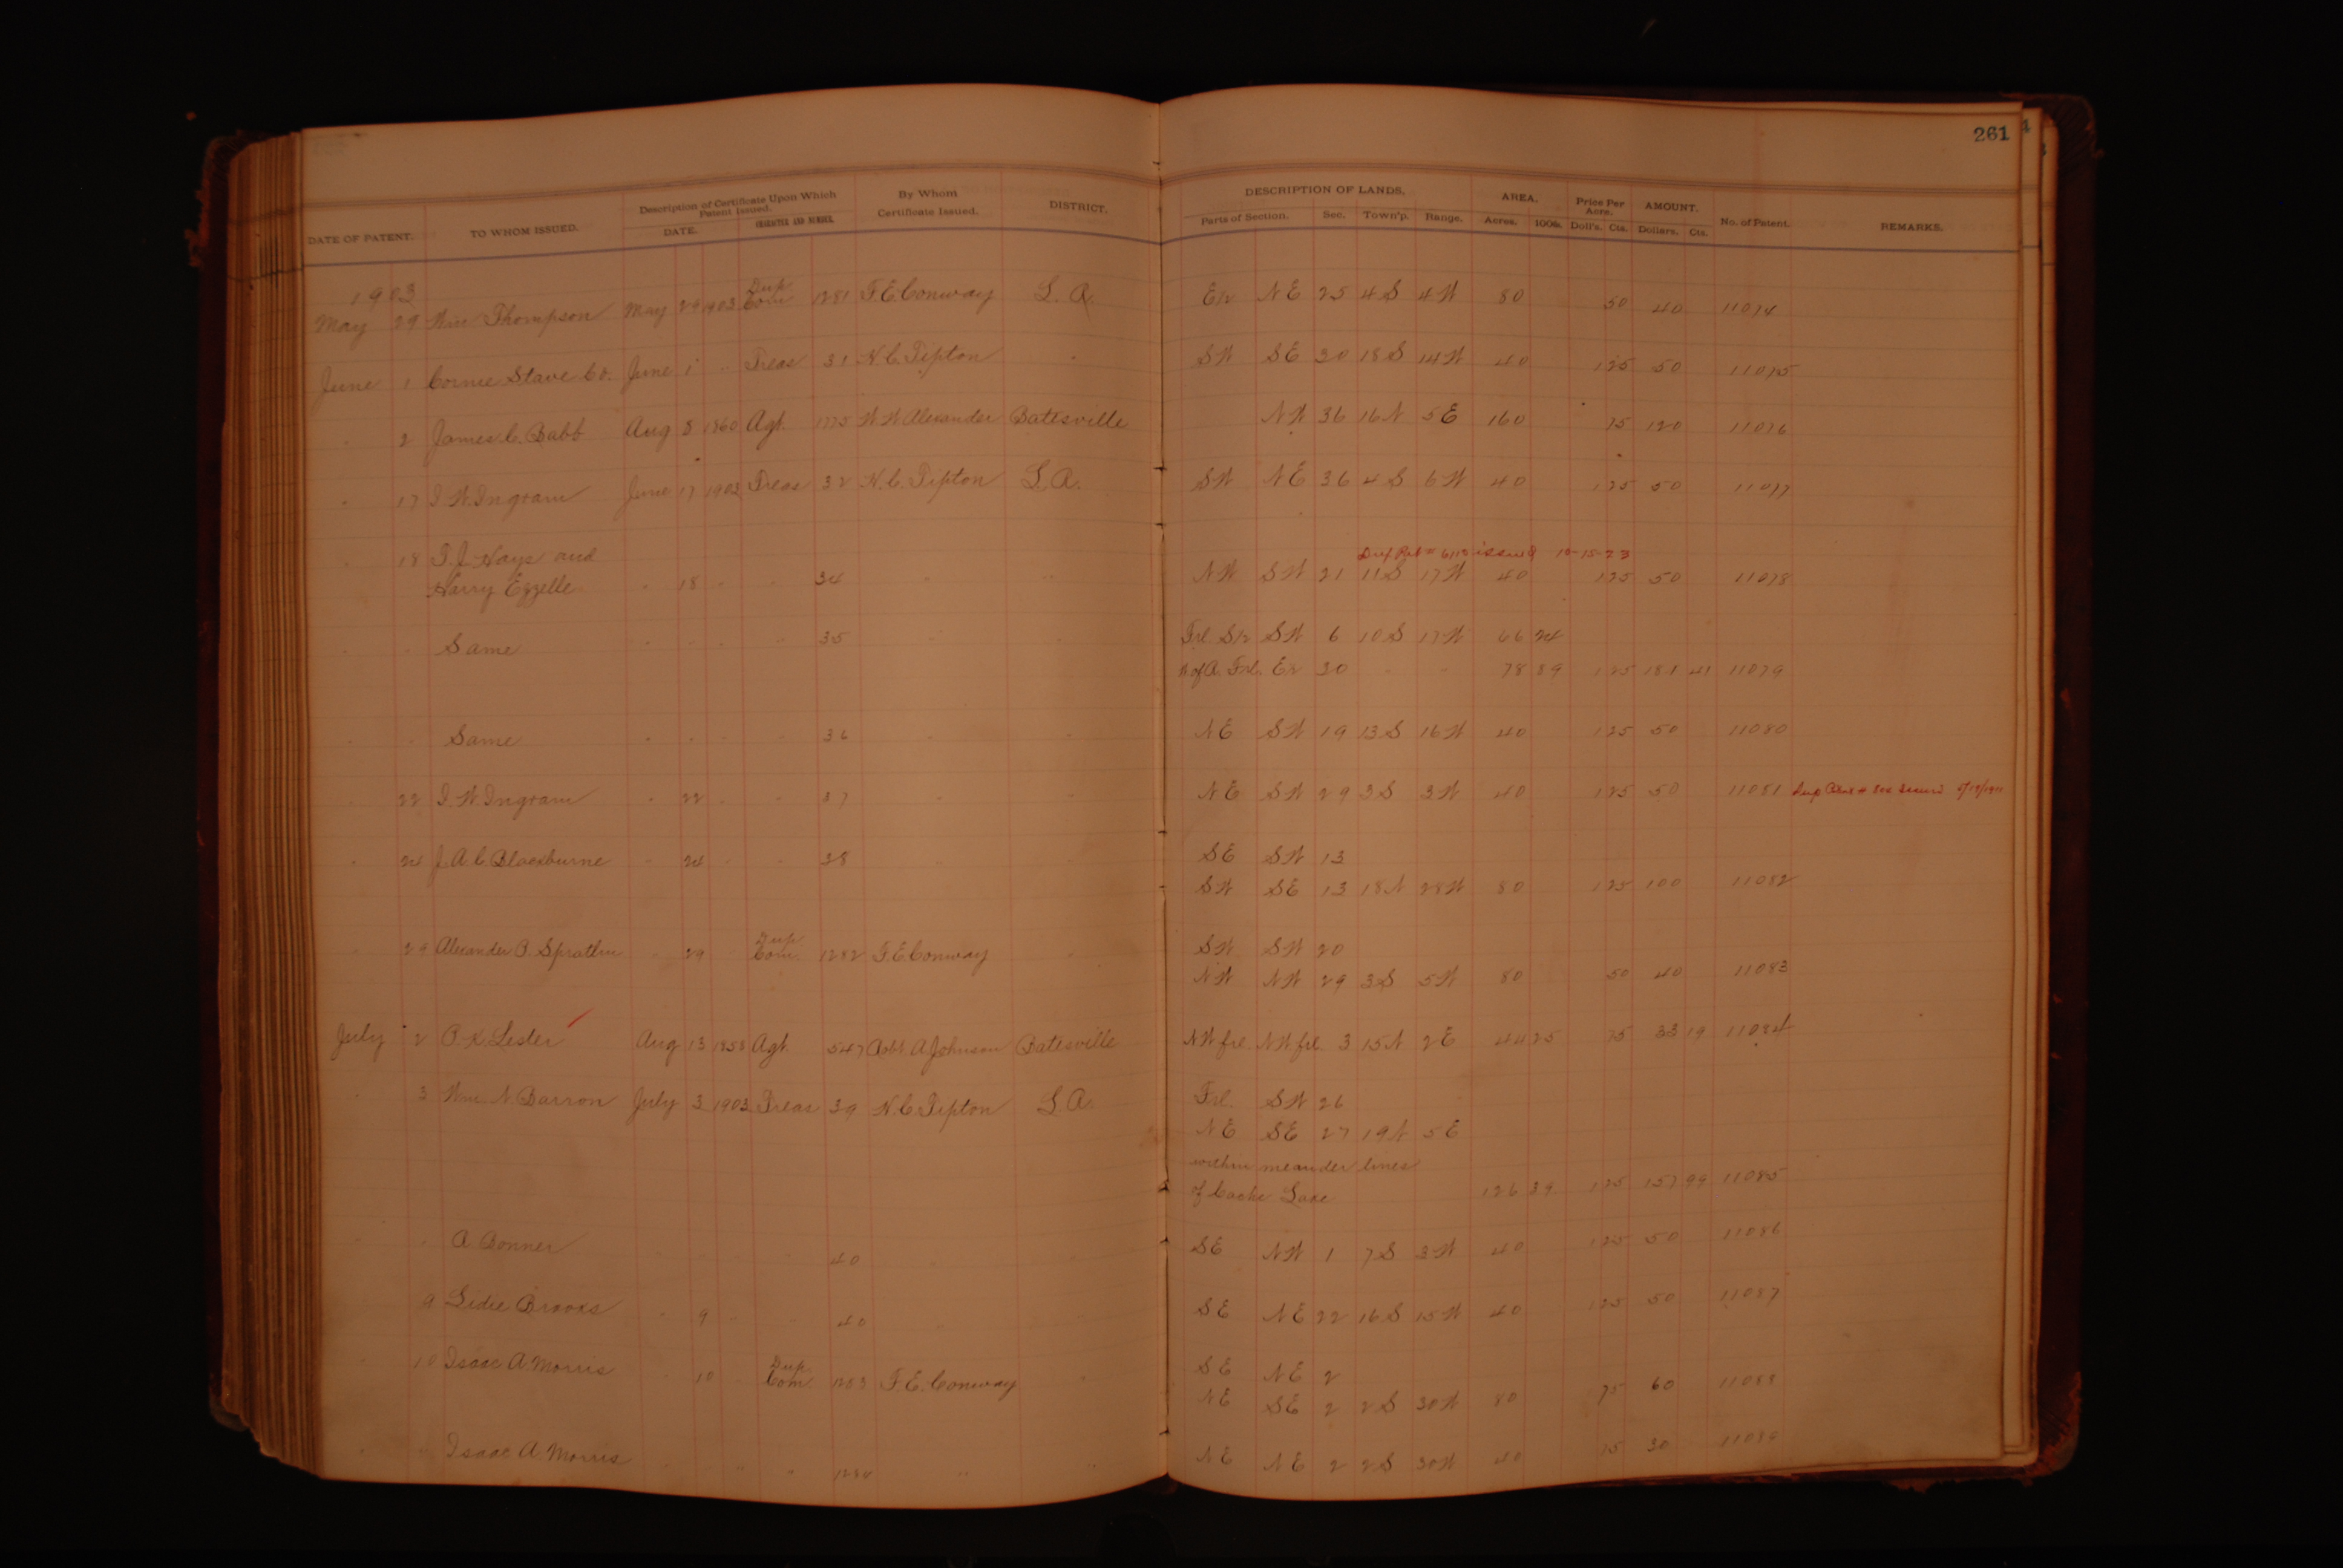 261
DATE OF PATENT. TO WHOM ISSUED. Description of Certificate Upon Which Patent Issued. DATE. CHARACTER AND NUMBER. By Whom Certificate Issued. DISTRICT. DESCRIPTION OF LANDS. Parts of Section. Sec. Town'p. Range. AREA. Acres. 100ths. Price Per Acre. Doll's. Cts. AMOUNT. Dollars. Cts. No. of Patent. REMARKS.
1903
May 29 Wm Thompson May 29 1903 Dup Com 1281 F. E. Conway L. R. E 1/2 NE 25 4S 4W 80 50 40 11074
June 1 Cornie Stave Co. June 1 " Treas 31 H. C. Tipton " SW SE 30 18S 14W 40 1 25 50 11075
" 2 James C. Babb Aug 8 1860 Agt. 1775 W. W. Alexander Batesville NW 36 16N 5E 160 75 120 11076
" 17 I. W. Ingram June 17 1903 Treas 32 H. C. Tipton L. R. SW NE 36 4S 6W 40 1 25 50 11077
Dup Pat # issued 10-15-23
" 18 T. J. Hays and
Harry Ezzelle " 18 " " 34 " " NW SW 21 11S 17W 40 1 25 50 11078
" " Same " " " " 35 " " Frl. S 1/2 SW 6 10S 17W 66 24
W of R. Frl. E 1/2 30 " " 78 89 1 25 181 41 11079
" " Same " " " " 36 " " NE SW 19 13S 16W 40 1 25 50 11080
" 22 I. W. Ingram " 22 " " 37 " " NE SW 29 3S 3W 40 1 25 50 11081 Dup issued
" 24 J. A. C. Blackburne " 24 " " 38 " " SE SW 13
SW SE 13 18N 28W 80 1 25 100 11082
" 29 Alexander P. Spratlin " 29 Dup Com. 1282 F. E. Conway " SW SW 20
NW NW 29 3S 5W 80 50 40 11083
July 2 P. K. Lester Aug 13 1858 Agt. 547 Robt. A Johnson Batesville NW frl. NW frl. 3 15N 2E 44 25 75 33 19 11084
" 3 Wm. N. Barron July 3 1903 Treas 39 H. C. Tipton L. R. Frl. SW 26
NE SE 27 19N 5E
within meander lines
of Cache Lake 126 39 1 25 157 99 11085
" " A. Bonner " " " " 40 " " SE NW 1 7S 3W 40 1 25 50 11086
" 9 Ledie Brooks " 9 " " 40 " " SE NE 22 16S 15W 40 1 25 50 11087
" 10 Isaac A. Morris " 10 " Dup. Com 1283 F. E. Conway " SE NE 2
NE SE 2 2S 30W 80 75 60 11088
" " Isaac A. Morris " " " " 1284 " " NE NE 2 2S 30W 40 75 30 11089